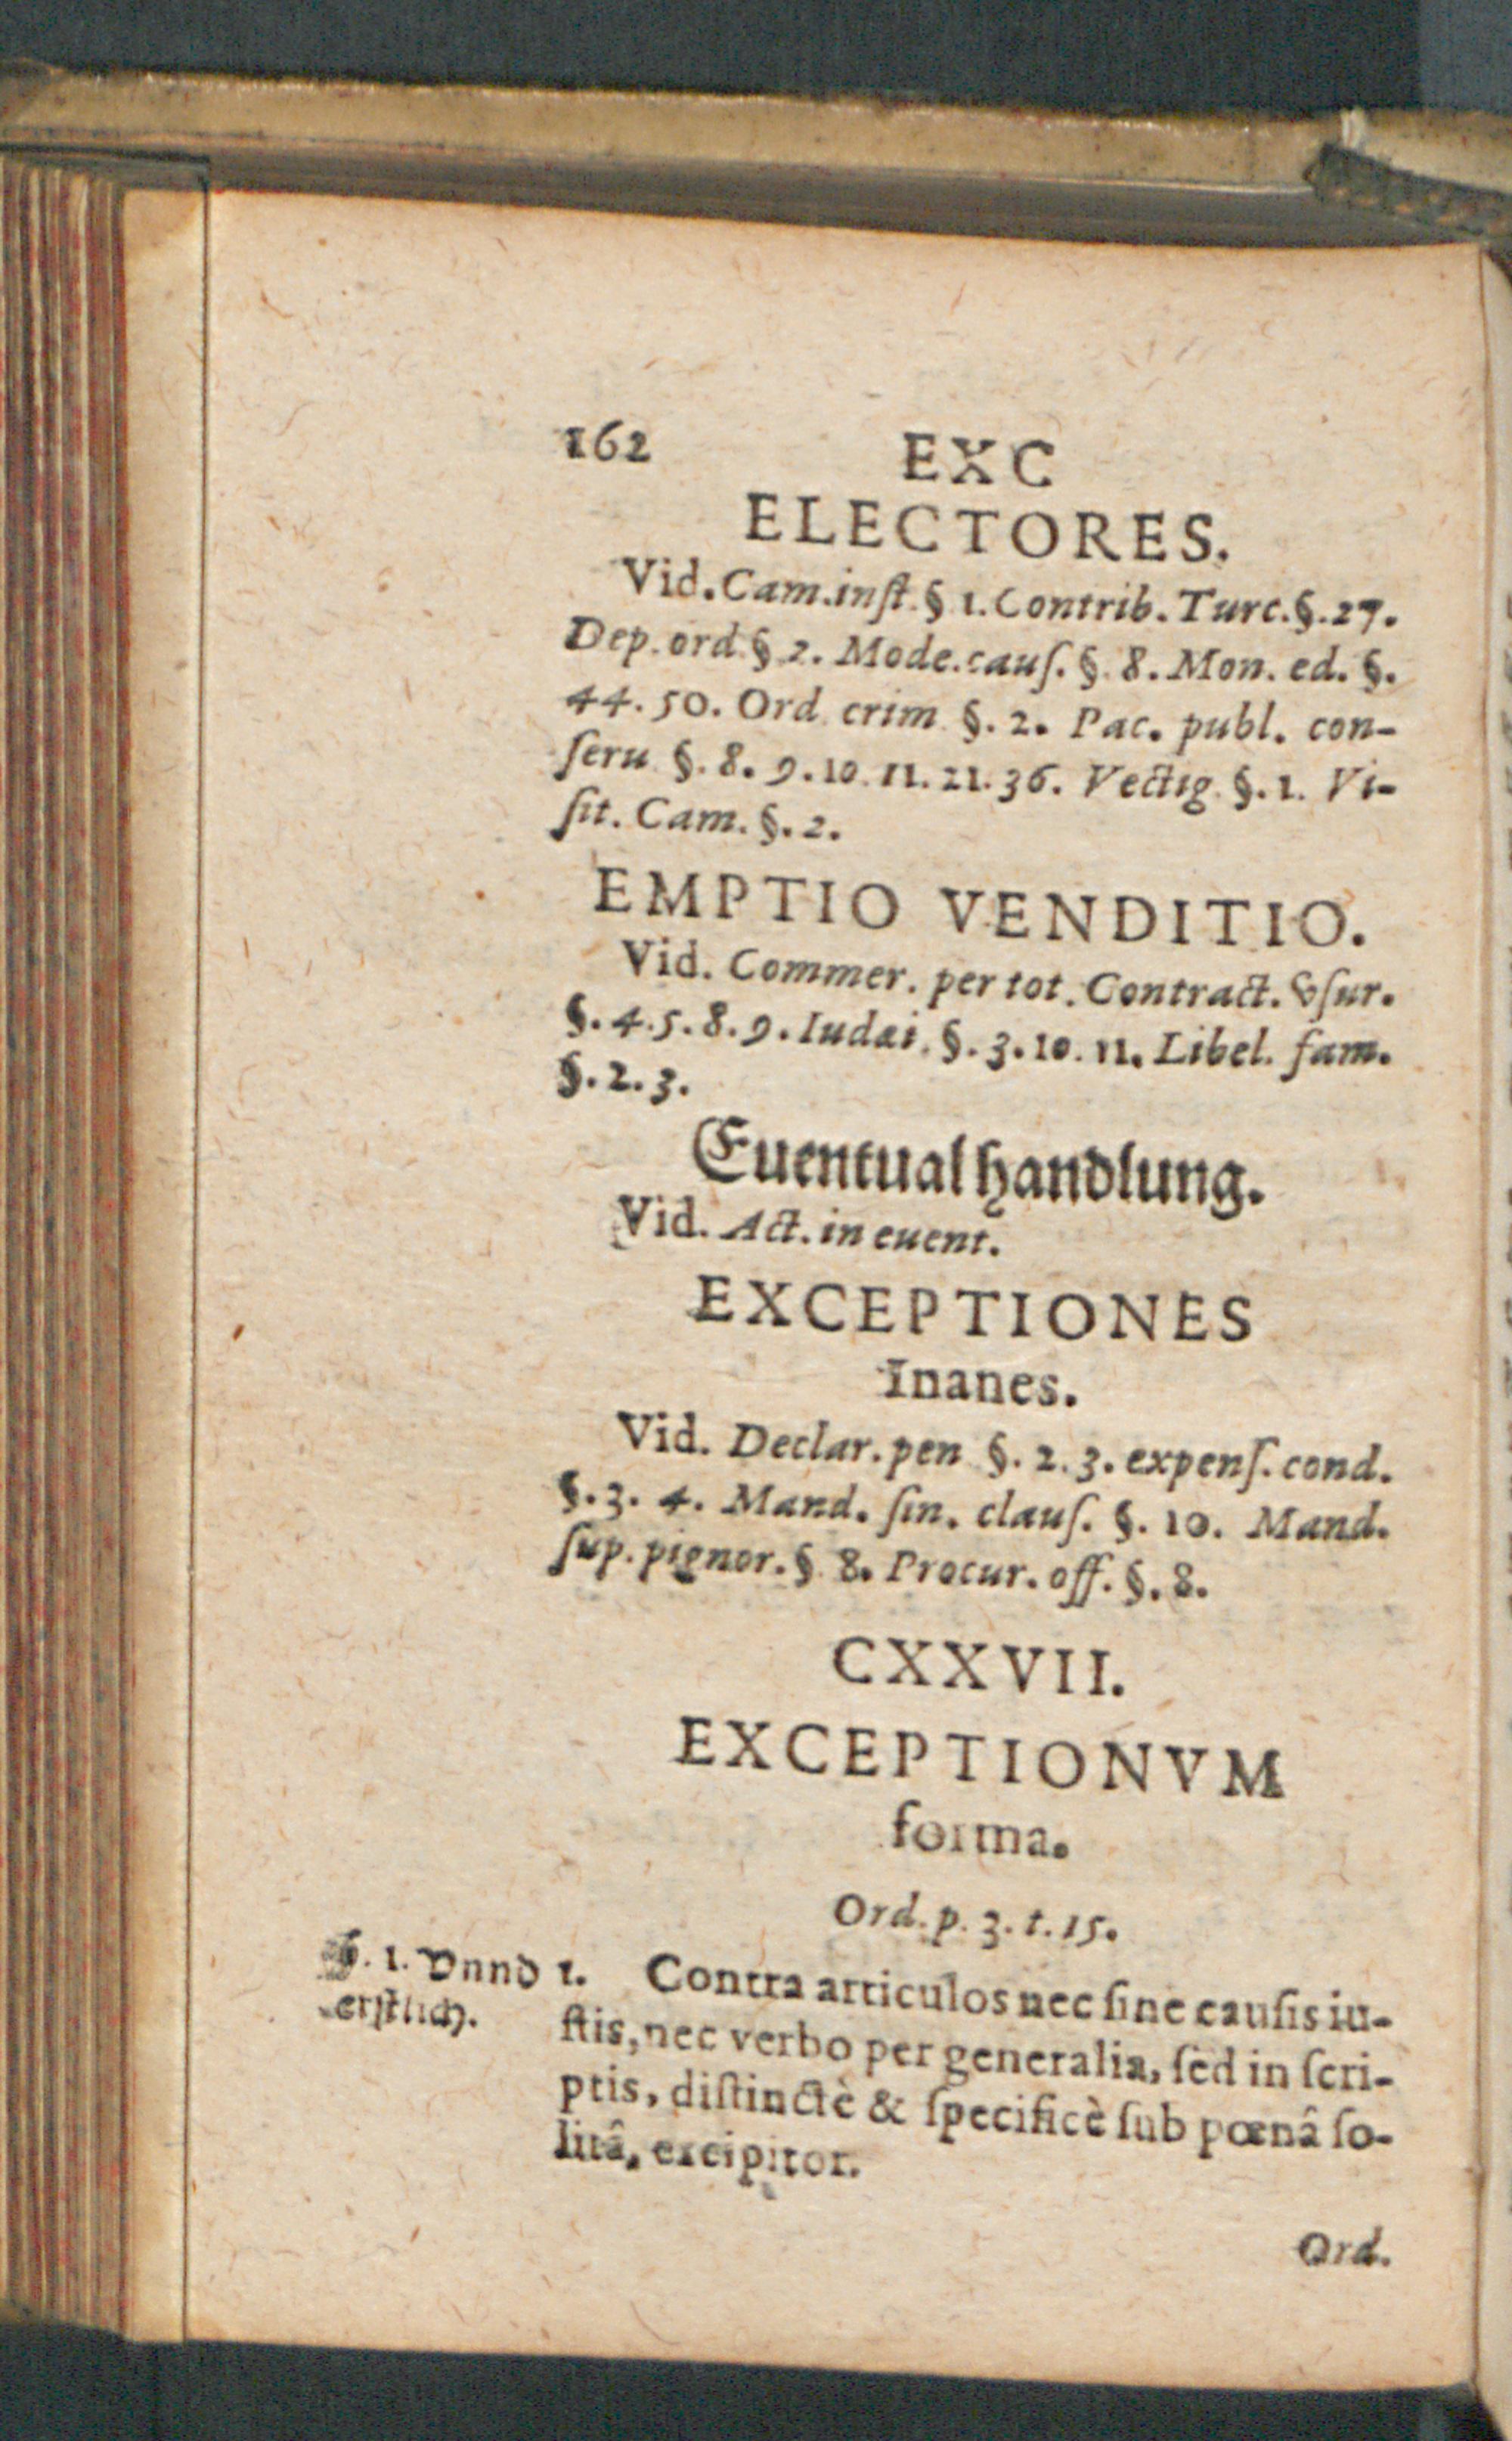 162 EXC
ELECTORES.
Vid. Cam. inſt. § 1. Contrib. Turc. §. 27.
Dep. ord. § 2. Mode. cauſ. §. 8. Mon. ed. §.
44. 50. Ord. crim. §. 2. Pac. publ. con-
ſeru. §. 8. 9. 10. 11. 21. 36. Vectig. §. 1. Vi-
ſit. Cam. §. 2.
EMPTIO VENDITIO.
Vid. Commer. per tot. Contract. vſur.
§. 4. 5. 8. 9. Iudæi. §. 3. 10. 11. Libel. fam.
§. 2. 3.
Euentualhandlung.
Vid. Act. in euent.
EXCEPTIONES
Inanes.
Vid. Declar. pen §. 2. 3. expenſ. cond.
§. 3. 4. Mand. ſin. clauſ. §. 10. Mand.
ſup. pignor. § 8. Procur. off. §. 8.
CXXVII.
EXCEPTIONVM
forma.
Ord. p. 3. t. 15.
§. 1. Vnnd
erſtlich.
1. Contra articulos nec ſine cauſis iu-
ſtis, nec verbo per generalia, ſed in ſcri-
ptis, diſtinctè & ſpecificè ſub pœnâ ſo-
litâ, excipitor.
Ord.